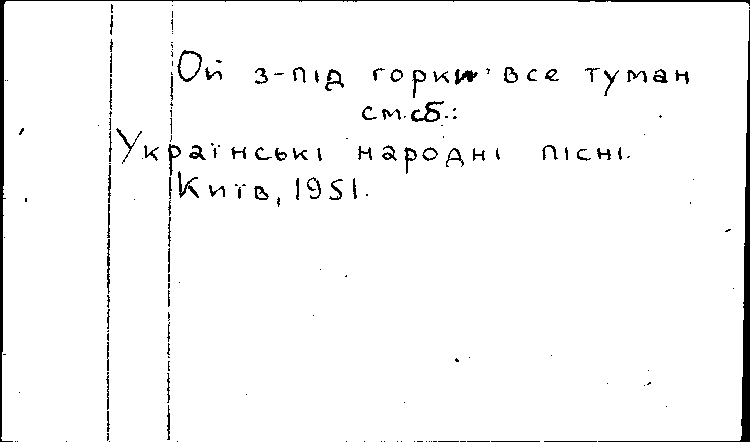 Ой з-під горки все туман
см.сб.:
Українські народні пісні.
Київ, 1951.